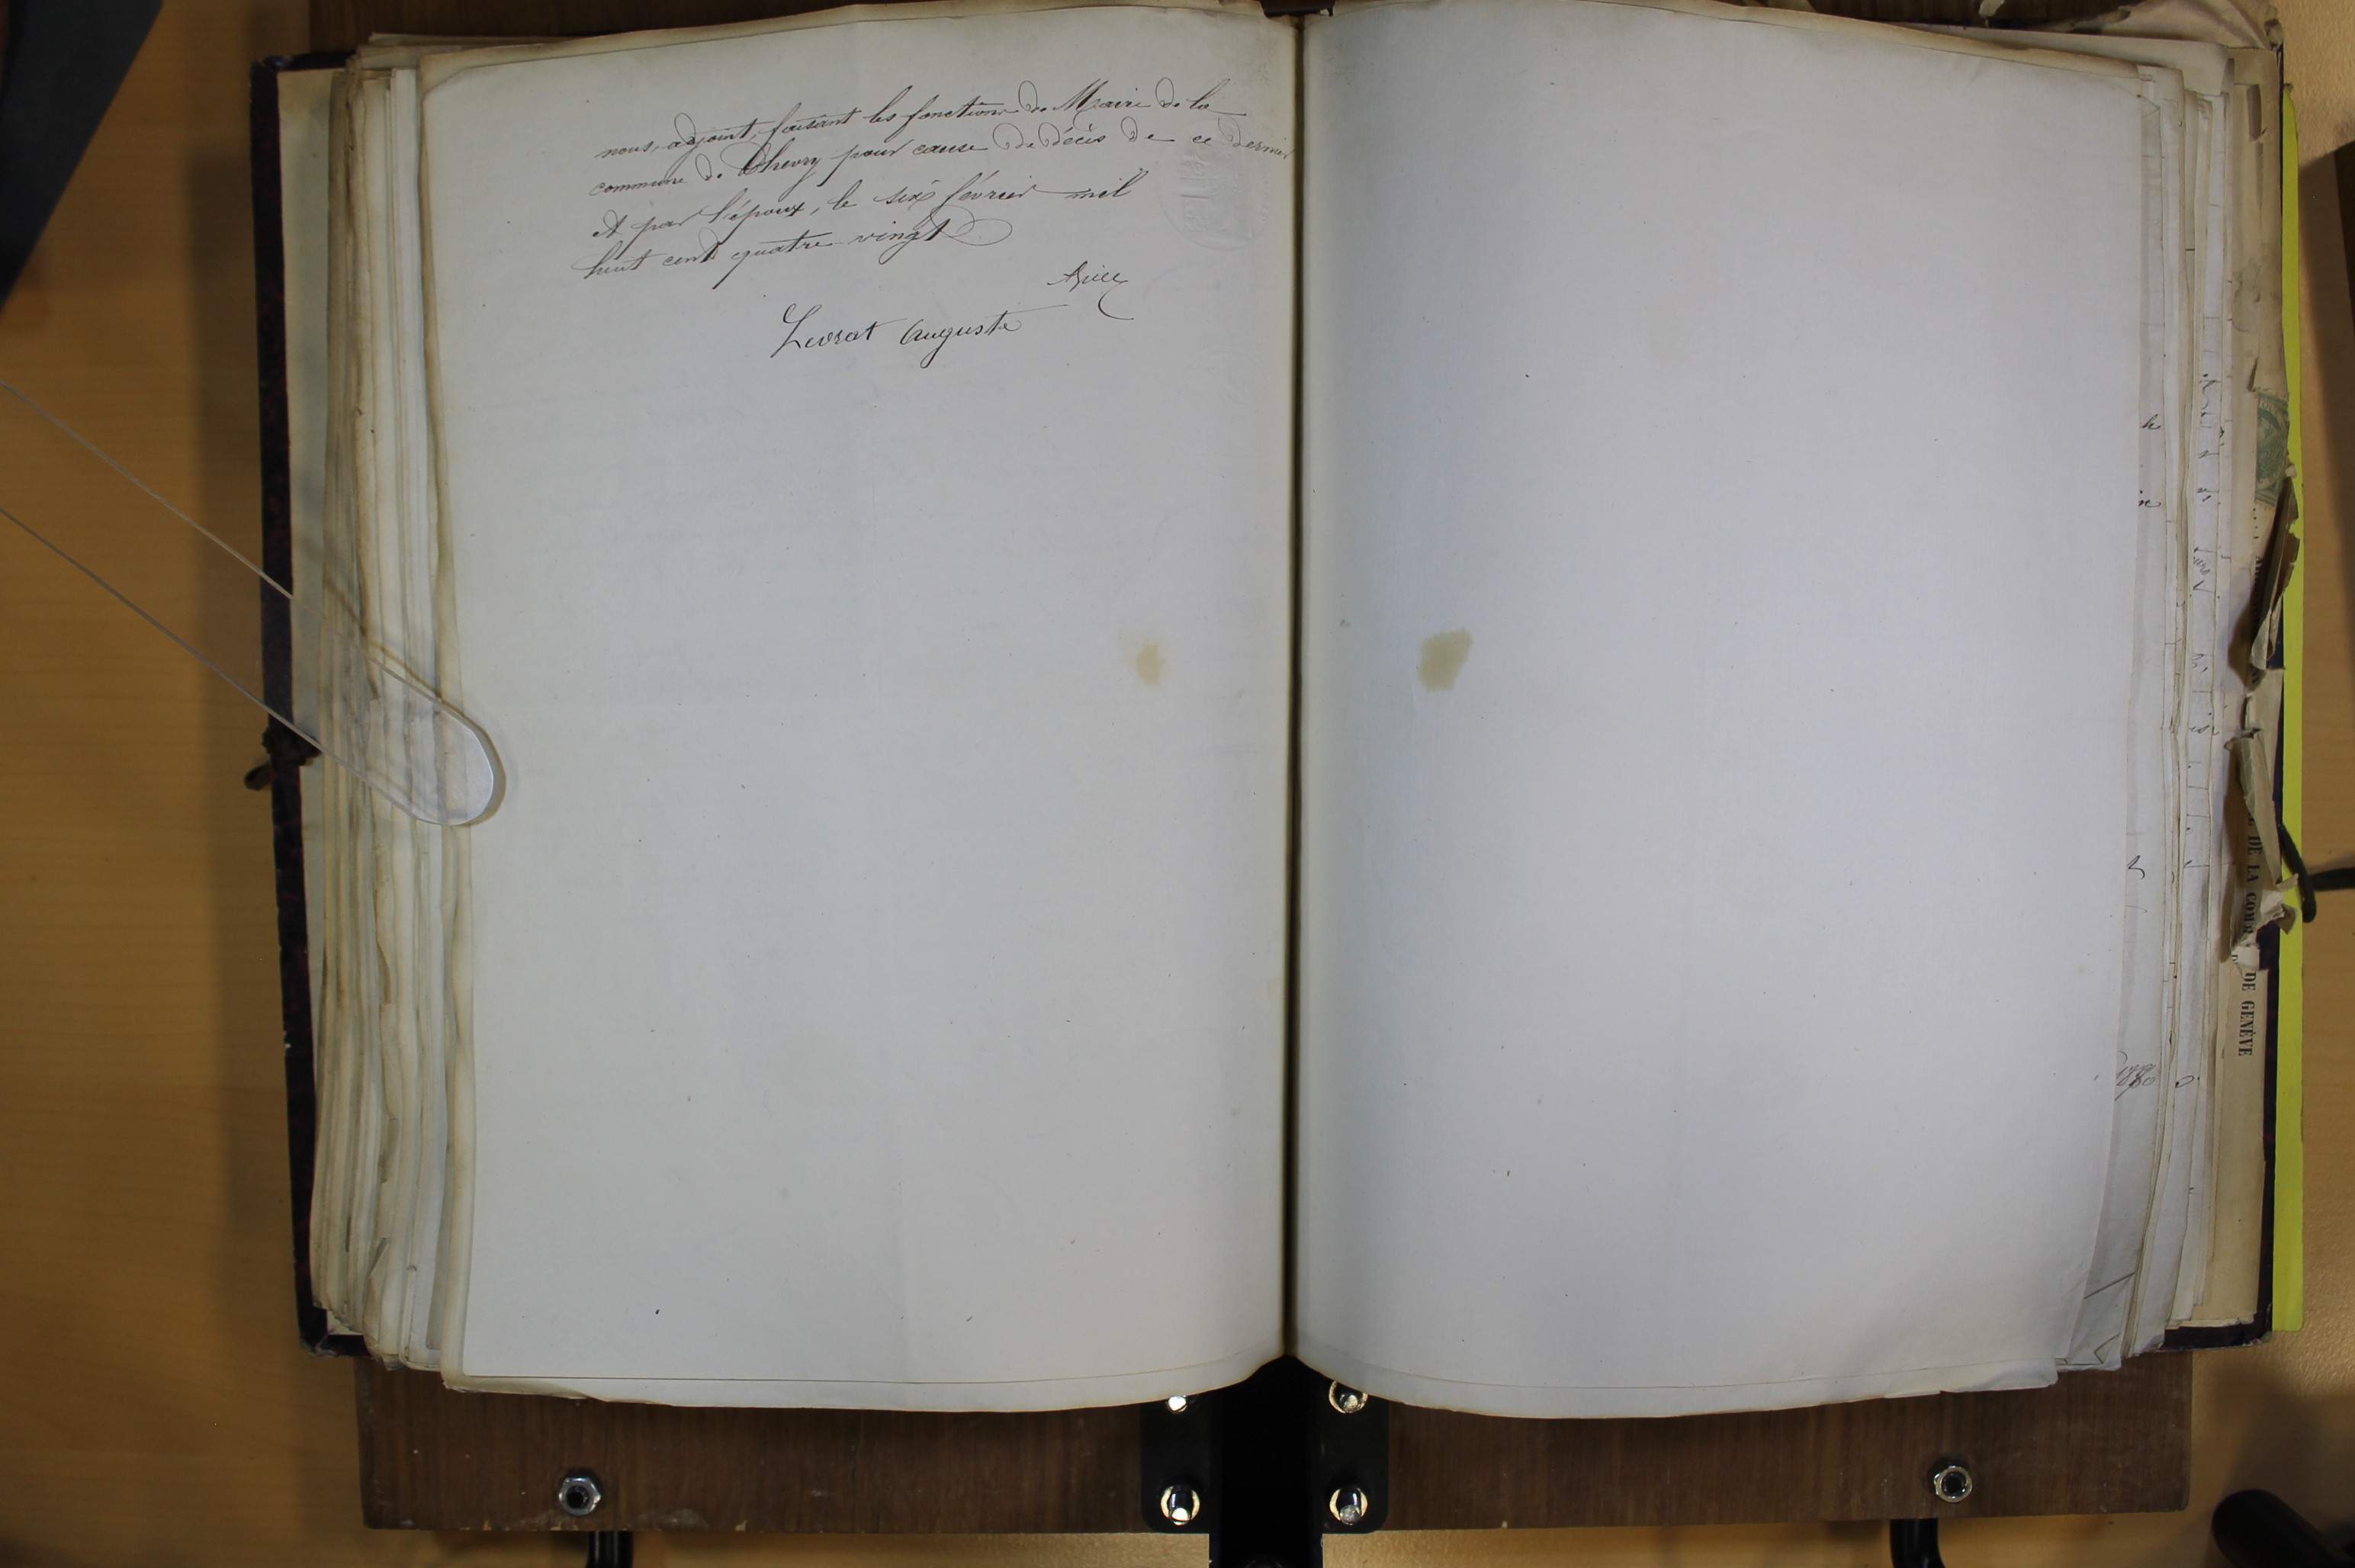 nous, adjoint, faisant les fonctions de Maire de la
commune de Chevry pour cause de décès de ce dernier
et par l'époux, le six février mil
huit cent quatre-vingt
Levrat Auguste
1880
DE LA COUR DE GENÈVE